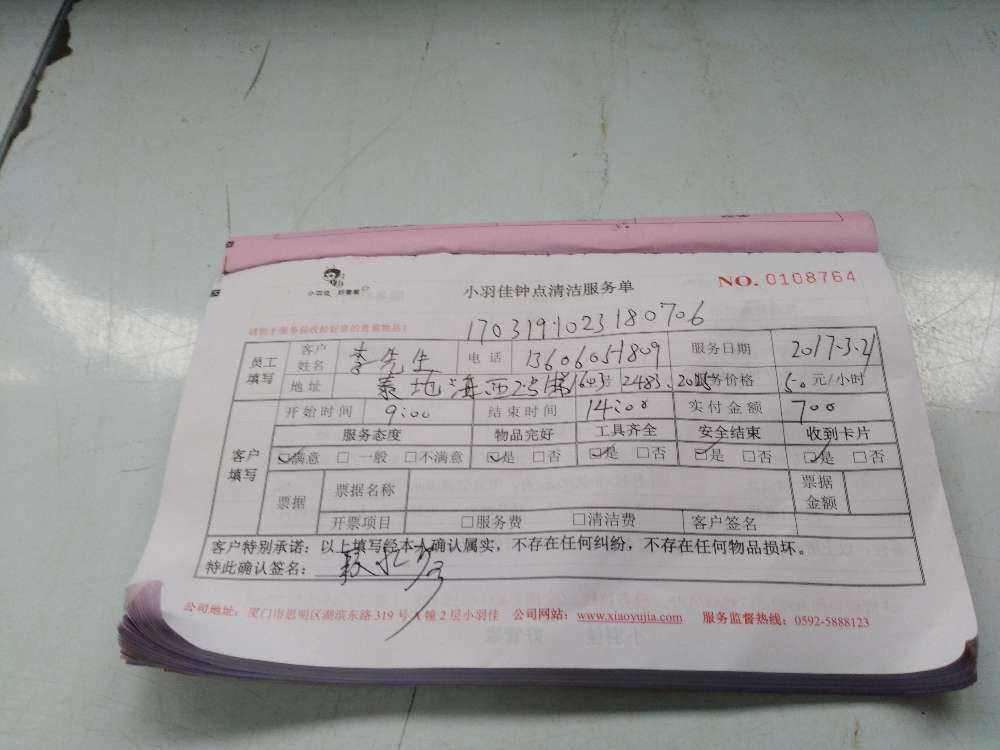 小羽佳 好管家
小羽佳钟点清洁服务单
NO. 0108764
请您于服务前收拾好您的贵重物品!
1703191023180706
员工填写 客户姓名 李先生 电话 13606051809 服务日期 2017-3-21
地址 泰地海西 1603号 2483.2015 服务价格 50 元/小时
客户填写 开始时间 9:00 结束时间 14:00 实付金额 700
服务态度 物品完好 工具齐全 安全结束 收到卡片
☑满意 □一般 □不满意 ☑是 □否 ☑是 □否 ☑是 □否 ☑是 □否
票据 票据名称 票据金额
开票项目 □服务费 □清洁费 客户签名
客户特别承诺:以上填写经本人确认属实,不存在任何纠纷,不存在任何物品损坏。
特此确认签名:
公司地址:厦门市思明区湖滨东路 319 号 A 幢 2 层小羽佳 公司网站:www.xiaoyujia.com 服务监督热线:0592-5888123